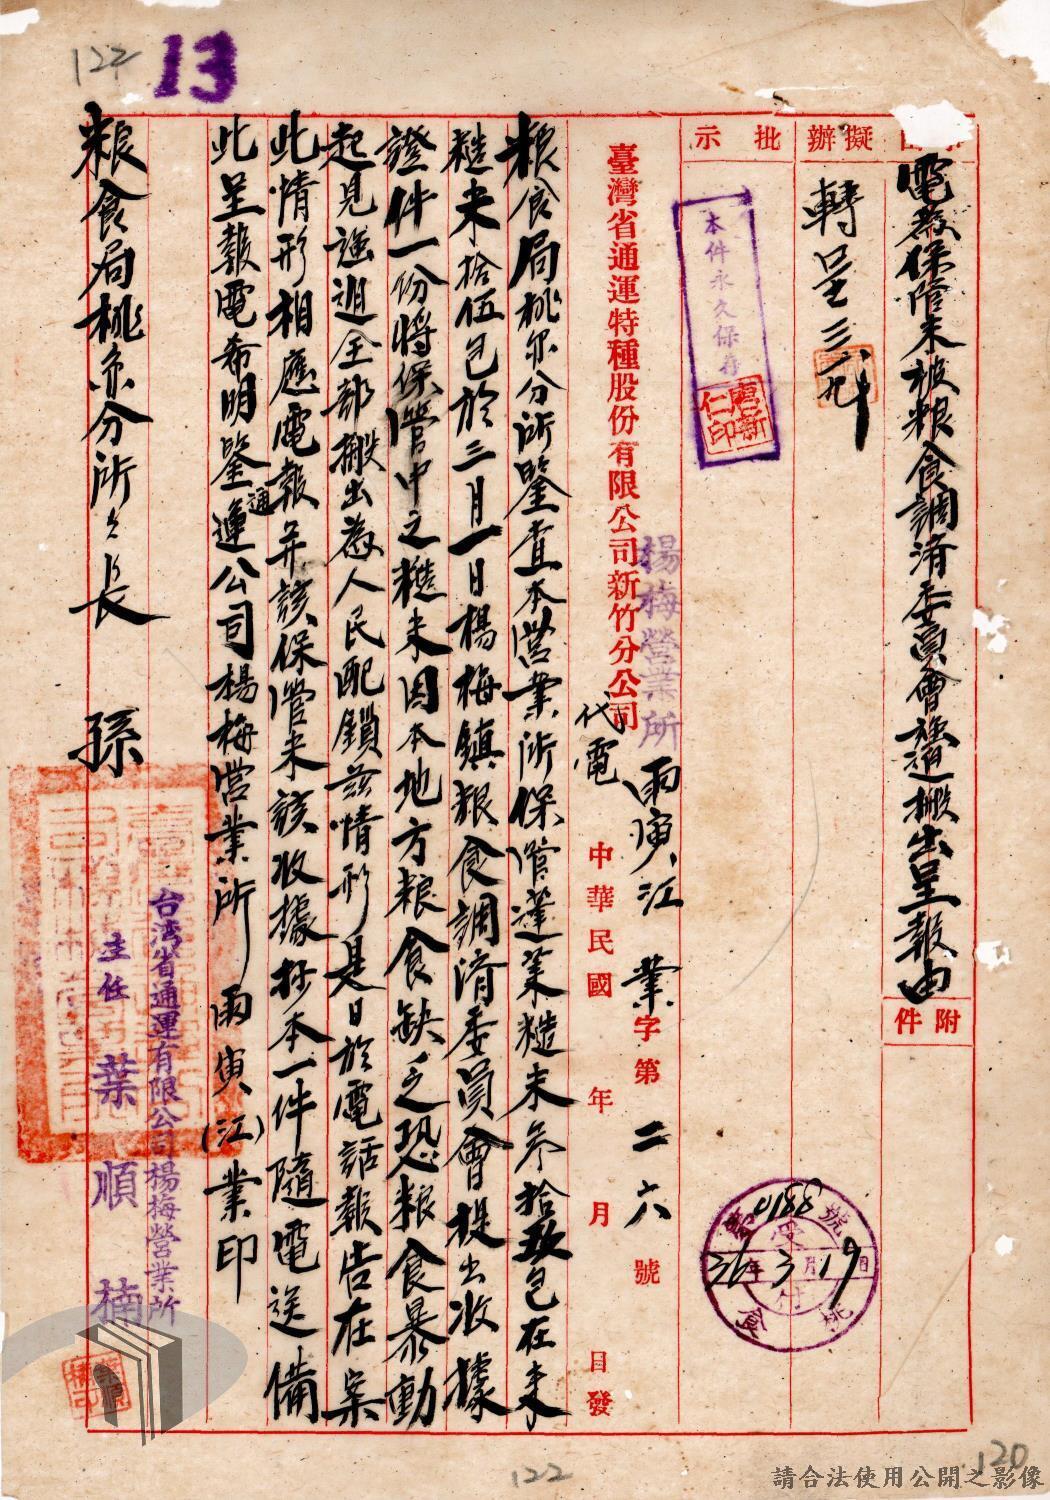 122
13
電為保管米被粮食調済委員會強迫搬出呈報由
附件
擬辦
轉呈 三、十九
批示
本件永久保存
唐新仁印
臺灣省通運特種股份有限公司新竹分公司
楊梅營業所
代電
雨寅江業字第二六號
中華民國 年 月 日發
粮食局桃分所鑒查本営業所保管蓬萊糙米叁拾玖包在来
糙米拾伍包於三月一日楊梅鎮粮食調済委員會提出收據
證件一份將保管中之糙米因本地方粮食缺乏恐粮食暴動
起見強迫全部搬出為人民配銷茲情形是日於電話報告在案
此情形相應電報并該保管米該收據抄本一件隨電送備
此呈報電希明鑒通運公司楊梅営業所 雨寅(江)業印
粮食局桃分所々長 孫
台湾省通運有限公司楊梅營業所
主任 葉順楠
4188號
受付
36年3月19日
桃
食
122
120
請合法使用公開之影像